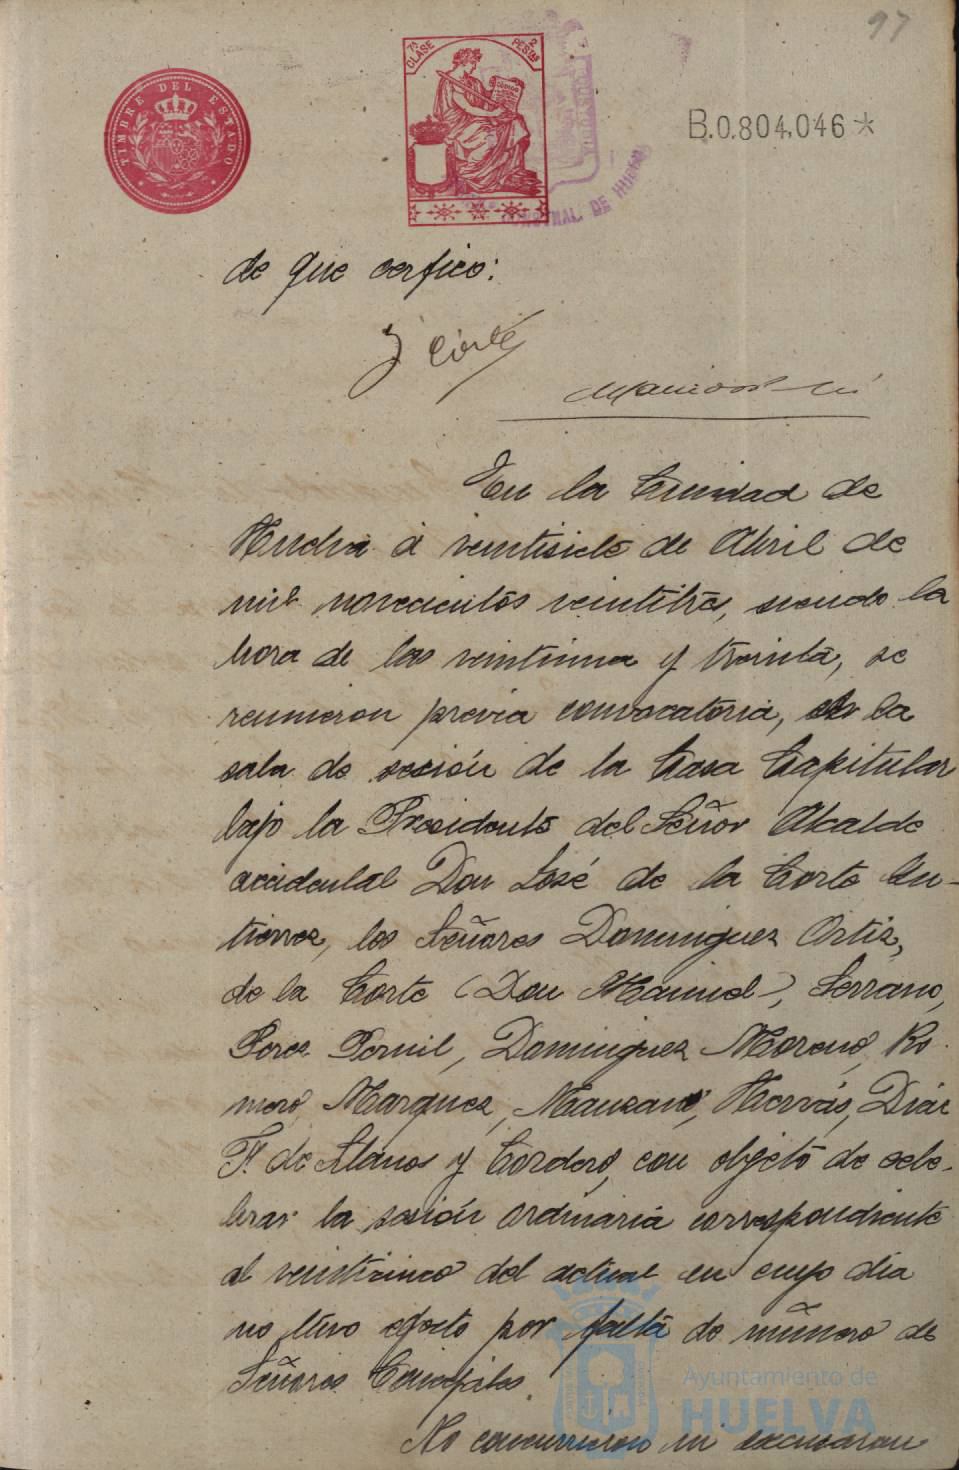 97
TIMBRE DEL ESTADO
7ª CLASE 2 PESETAS
B.0.804,046*
DE HUELVA
de que cerfico:
J Corte
En la Ciudad de
Huelva á veintisiete de Abril de
mil novecientos veintitres, siendo la
hora de las veintiuna y treinta, se
reunieron previa convocatoria, en la
sala de sesión de la Casa Capitular
bajo la Presidente del Señor Alcalde
accidental Don José de la Corte Gu-
tierrez, los Señores Dominguez Ortiz,
de la Corte (Don Manuel), Serrano,
Perez Pernil, Dominguez Moreno, Ro-
mero, Marquez, Manzano, Hervás, Diaz
F. de Llanos y Cordero, con objeto de cele-
brar la sesión ordinaria correspondiente
al veinticinco del actual en cuyo dia
no tuvo efecto por falta de número de
Señores Concejales.
No concurrieron ni excusaron
Ayuntamiento de
HUELVA